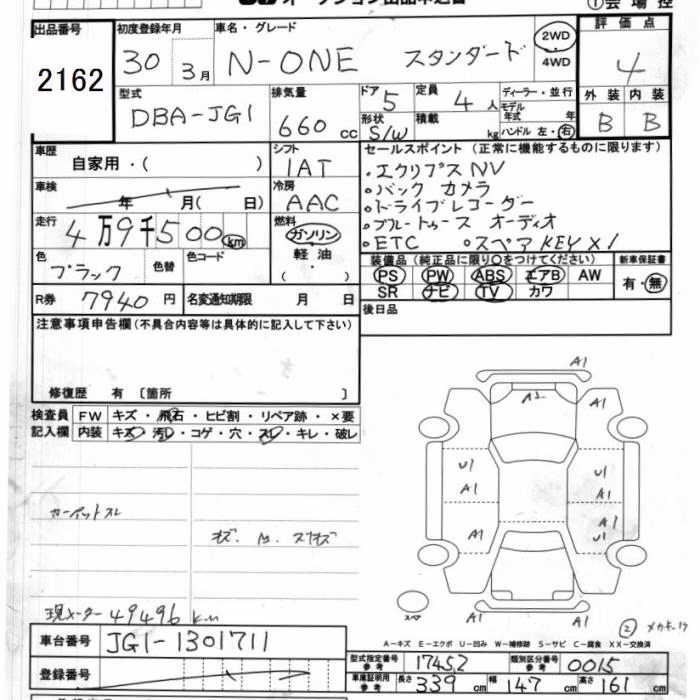 出品番号 初度登録年月 車名・グレード 評価点
2162 30 3月 N-ONE スタンダード 2WD 4
4WD
型式 排気量 ドア 定員 ディーラー・並行 外装 内装
DBA-JG1 660cc 5 4人 モデル年式 年 B B
形状 S/W 積載 kg ハンドル 左・右
車歴 シフト セールスポイント(正常に機能するものに限ります)
自家用・( ) IAT ・エクリプスNV
車検 冷房 ・バックカメラ
年 月( 日) AAC ・ドライブレコーダー
走行 燃料 ・ブルートゥース オーディオ
4万9千500km ガソリン ・ETC ・スペアKEY×1
色 色替 色コード 軽油 装備品(純正品に限り○をつけてください) 新車保証書
ブラック ・( ) PS PW ABS エアB AW 有・無
R券 7940円 名変通知期限 月 日 SR ナビ TV カワ
注意事項申告欄(不具合内容等は具体的に記入して下さい) 後日品
修復歴 有〔箇所 〕
検査員 FW キズ・飛石・ヒビ割・リペア跡・×要
記入欄 内装 キズ・汚レ・コゲ・穴・スレ・キレ・破レ
A1
A1
U1 U1
A1 A1
A1 A1
U1
A1
カーペットスレ
現メーター49496km
スペア
②
車台番号 JG1-1301711
A-キズ E-エクボ U-凹み W-補修跡 S-サビ C-腐食 XX-交換済
型式指定番号 参考 17452 類別区分番号 参考 0015
登録番号 車庫証明用 参考 長さ 339cm 幅 147cm 高さ 161cm